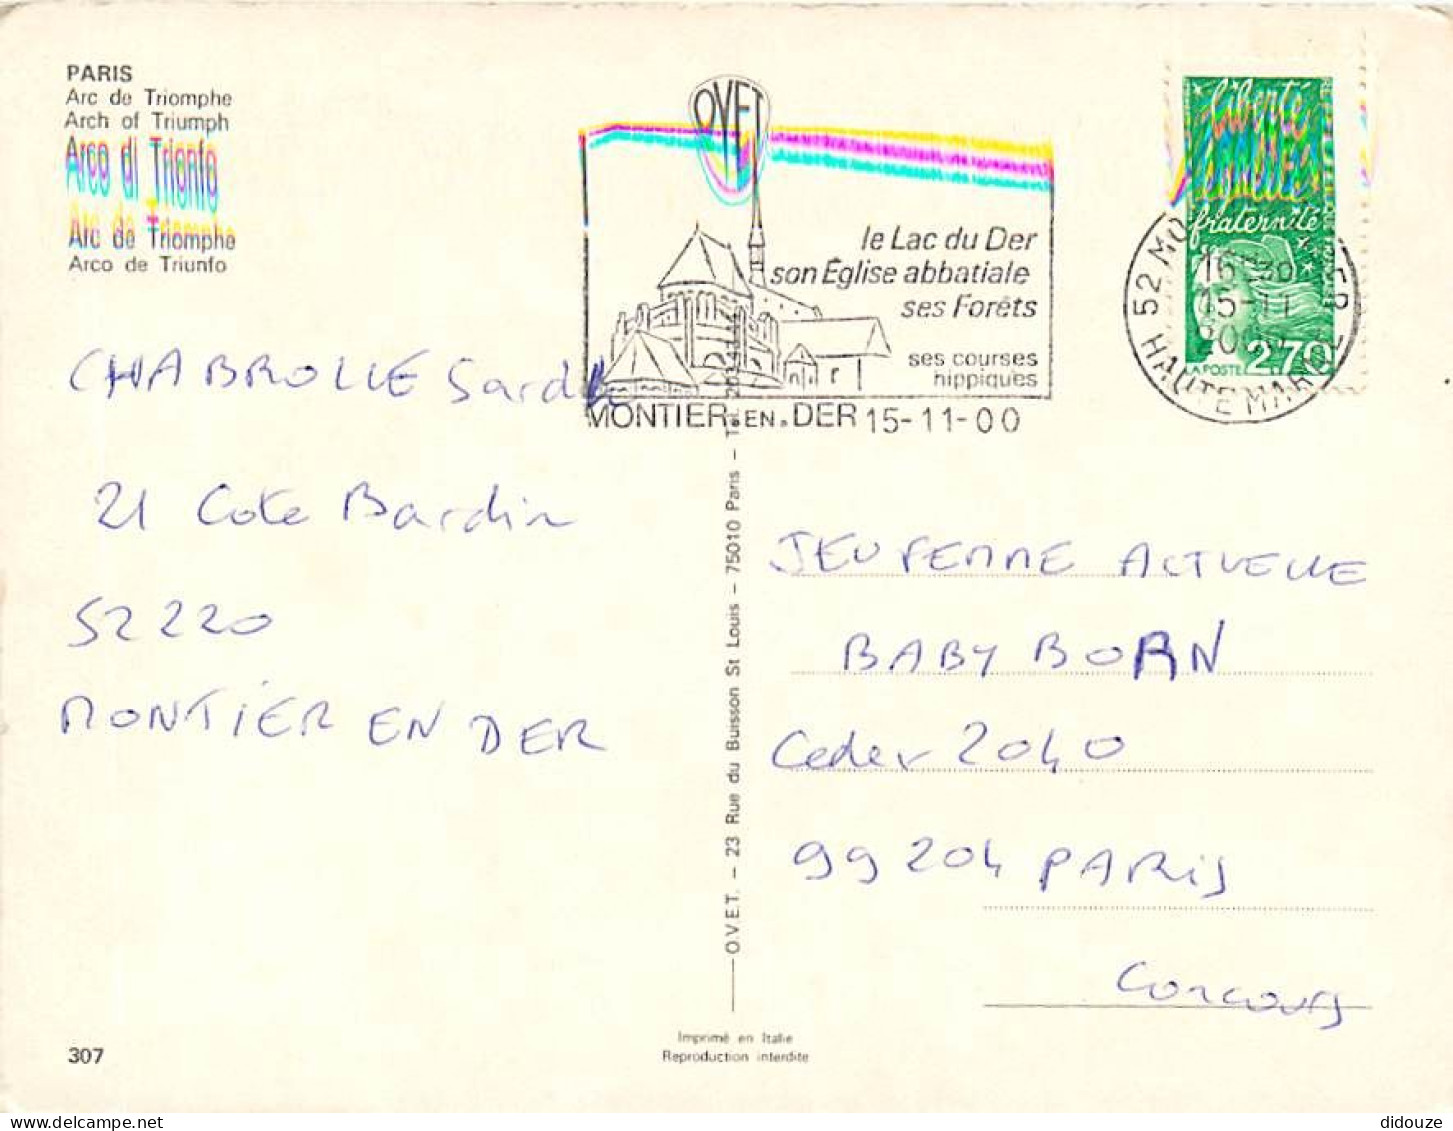 PARIS
Arc de Triomphe
Arch of Triumph
Arco di Trionfo
Arc de Triomphe
Arco de Triunfo
OVET
le Lac du Der
son Église abbatiale
ses Forêts
ses courses
hippiques
MONTIER.EN.DER 15-11-00
liberté
égalité
fraternité
LA POSTE 2,70
52 MO
HAUTE MARNE
16-30
15-11
2000
CHABROLLE
21 Cote Bardin
52220
MONTIER EN DER
O.V.E.T. – 23 Rue du Buisson St Louis – 75010 Paris – Tél.
JEU FEMME ACTUELLE
BABY BORN
Cedex 2040
99204 PARIS
Concours
307
Imprimé en Italie
Reproduction interdite
didouze